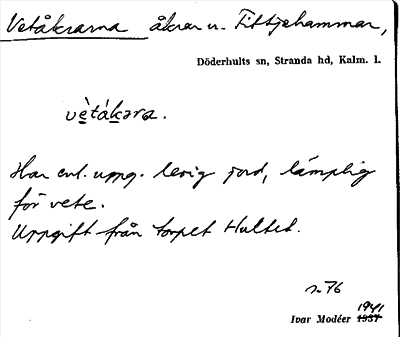 Vetåkrarna åkrar u. Fittjehammar,
Döderhults sn, Stranda hd, Kalm. l.
vètákara.
Har enl. uppg. lerig jord, lämplig
för vete.
Uppgift från torpet Hultet.
s. 76
1941
Ivar Modéer 1937